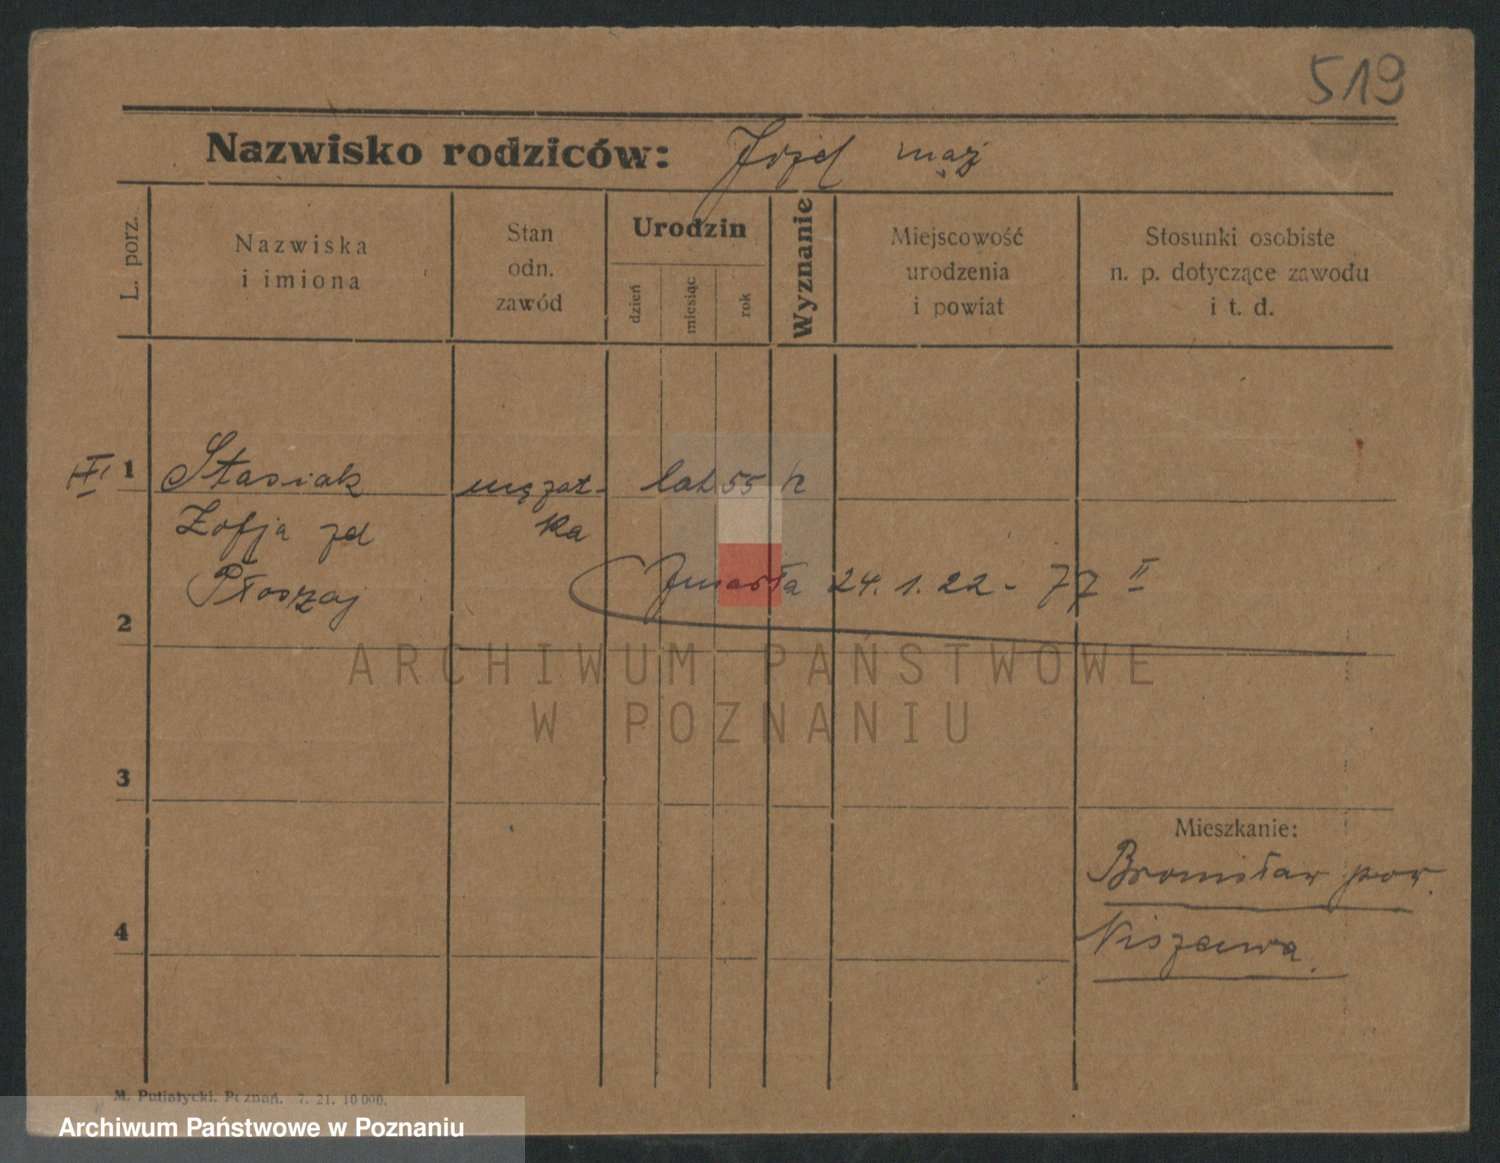 519
Nazwisko rodziców: Józef mąż
L. porz.
Nazwiska
i imiona
Stan
odn.
zawód
Urodzin
dzień
miesiąc
rok
Wyznanie
Miejscowość
urodzenia
i powiat
Stosunki osobiste
n. p. dotyczące zawodu
i t. d.
1 Stasiak mężat- lat 55
Zofja zd ka
Płoszaj Zmarła 24. 1. 22 - 77 II
2
ARCHIWUM PAŃSTWOWE
W POZNANIU
3
Mieszkanie:
Bronisław pow.
4 Niszawa.
M. Putiatycki. Poznań. 7. 21. 10 000.
Archiwum Państwowe w Poznaniu